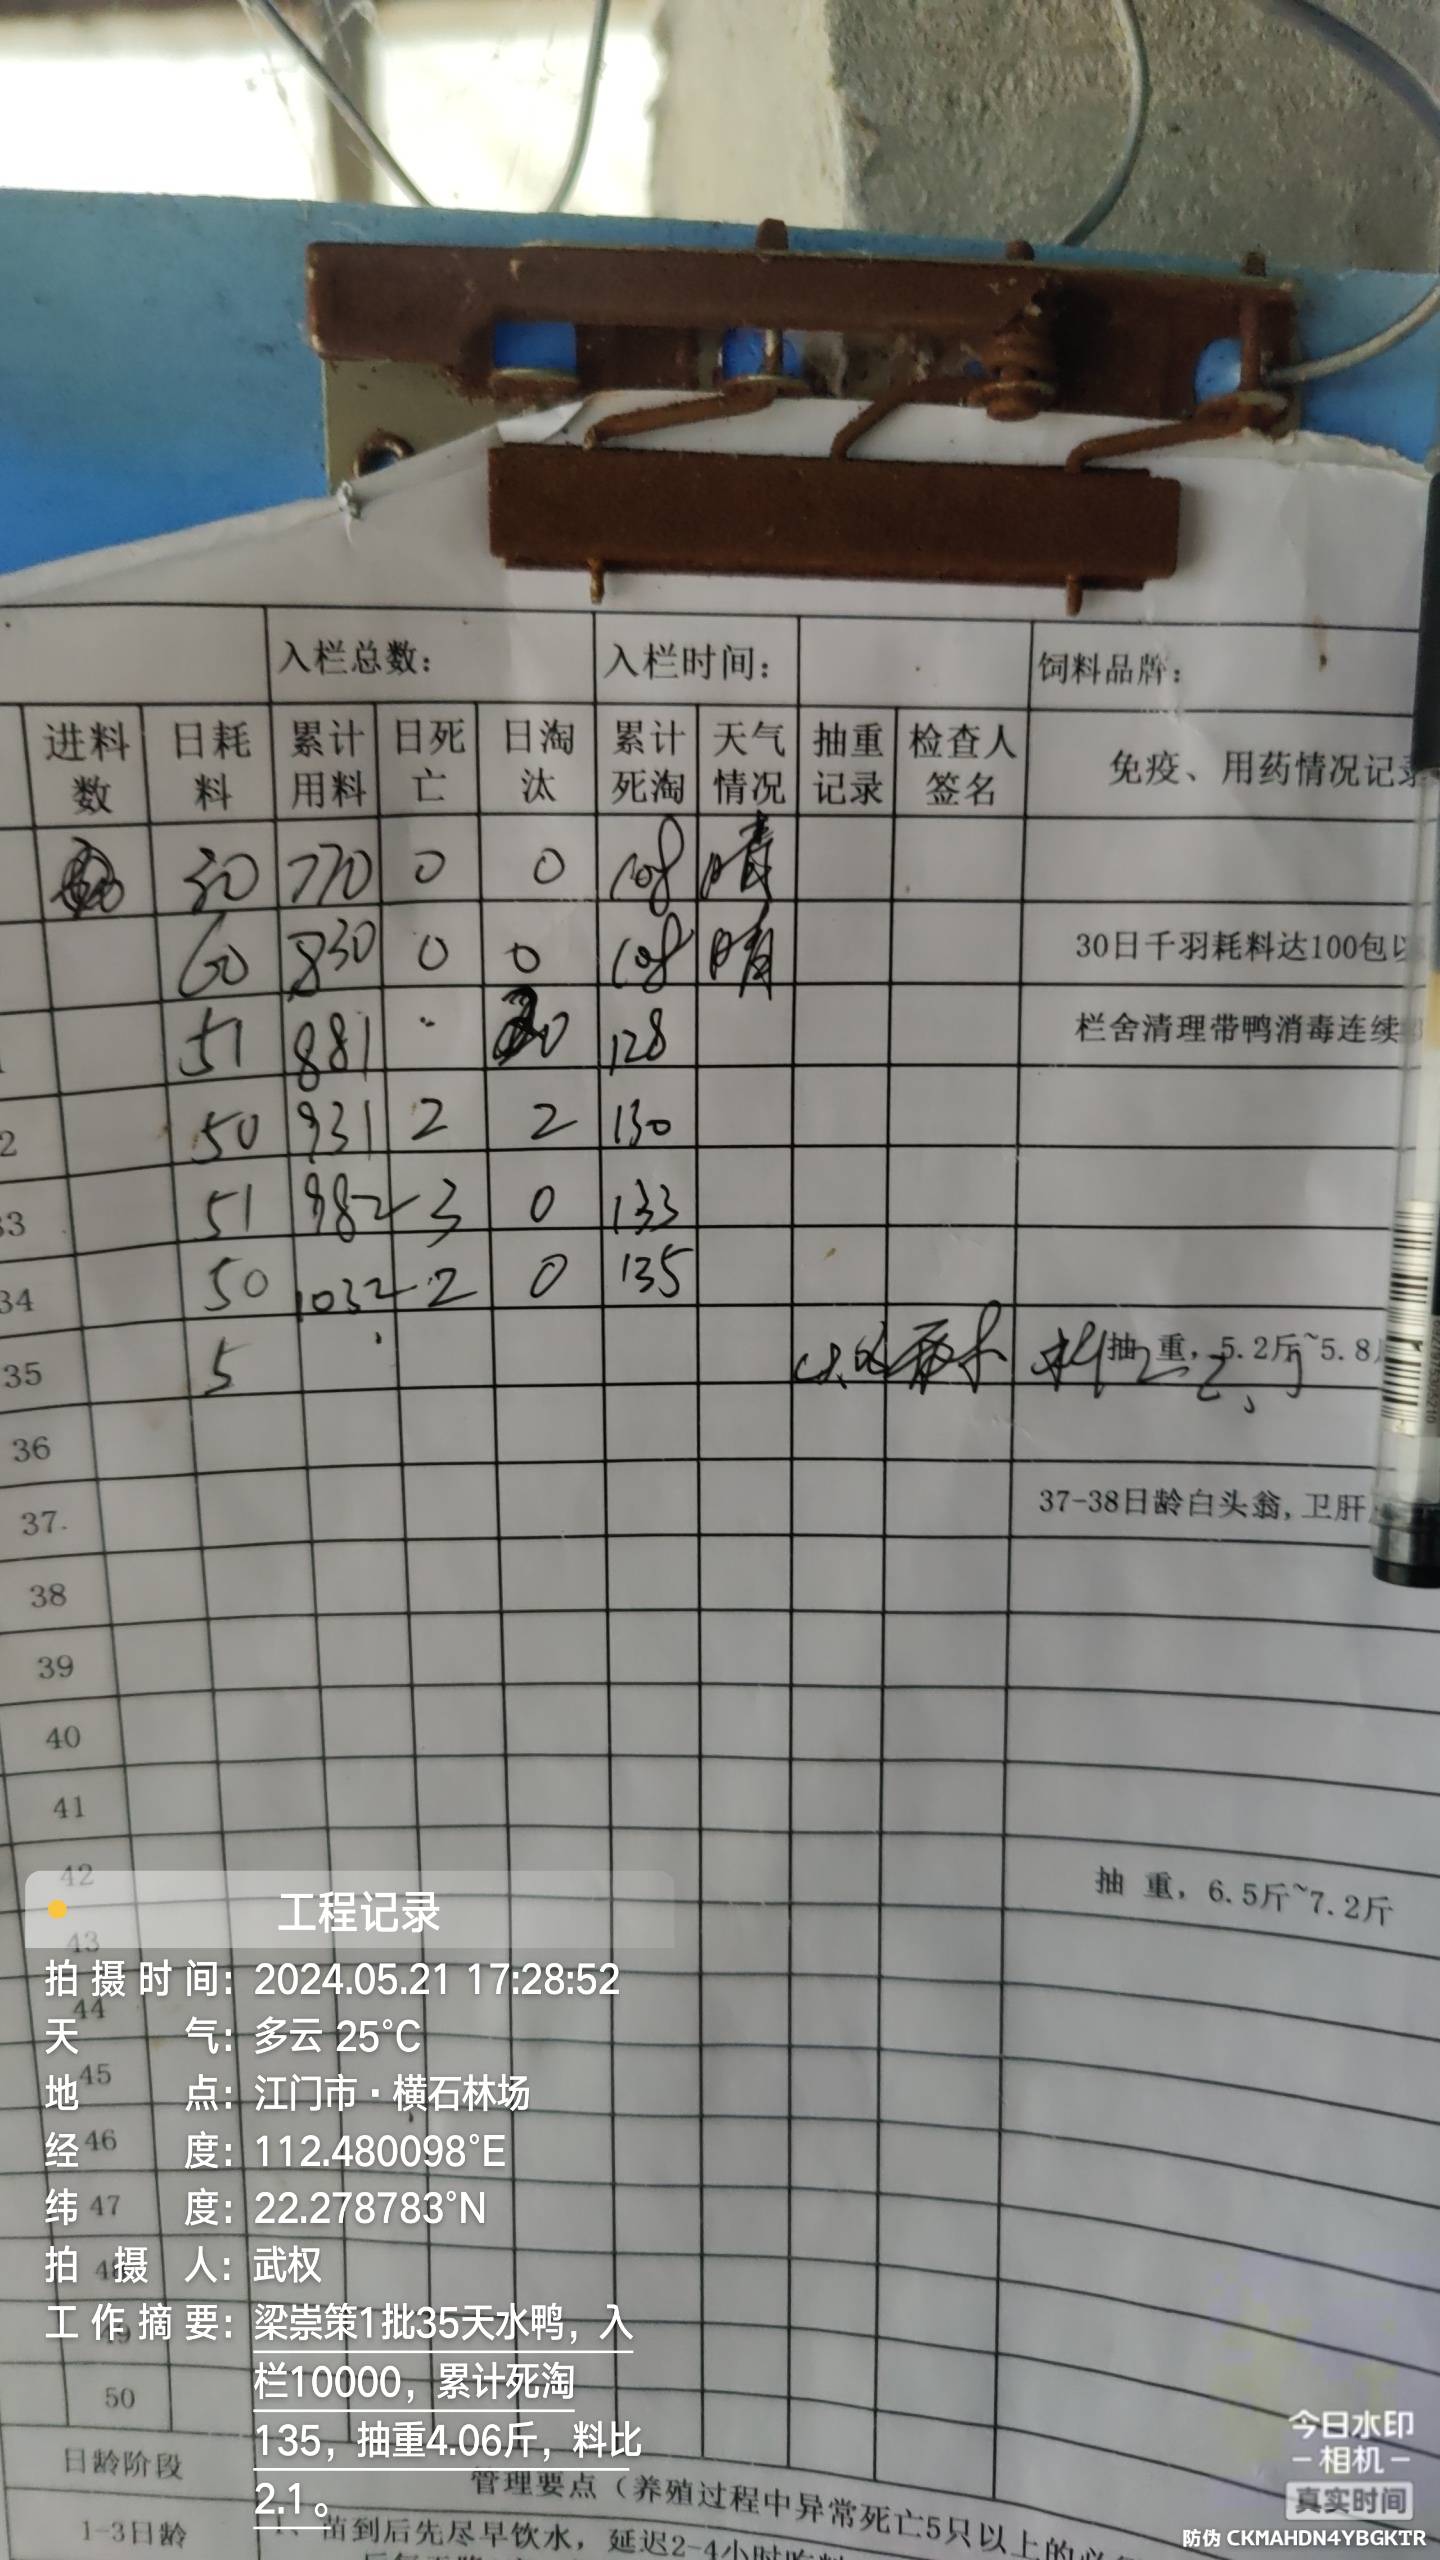 入栏总数: 入栏时间: 饲料品牌:
进料数 日耗料 累计用料 日死亡 日淘汰 累计死淘 天气情况 抽重记录 检查人签名 免疫、用药情况记录
50 770 0 0 108 晴
60 830 0 0 108 晴 30日千羽耗料达100包以
51 881 128 栏舍清理带鸭消毒连续
2 50 931 2 2 130
33 51 982 3 0 133
34 50 1032 2 0 135
35 5 抽 重, 5.2斤~5.8
36
37 37-38日龄白头翁, 卫肝
38
39
40
41
42 抽 重, 6.5斤~7.2斤
43
44
45
46
47
48
49
50
日龄阶段 管理要点（养殖过程中异常死亡5只以上的必
1-3日龄 1、苗到后先尽早饮水, 延迟2-4小时
工程记录
拍摄时间: 2024.05.21 17:28:52
天气: 多云 25°C
地点: 江门市·横石林场
经度: 112.480098°E
纬度: 22.278783°N
拍摄人: 武权
工作摘要: 梁崇策1批35天水鸭, 入
栏10000, 累计死淘
135, 抽重4.06斤, 料比
2.1。
今日水印
相机
真实时间
防伪 CKMAHDN4YBGKTR